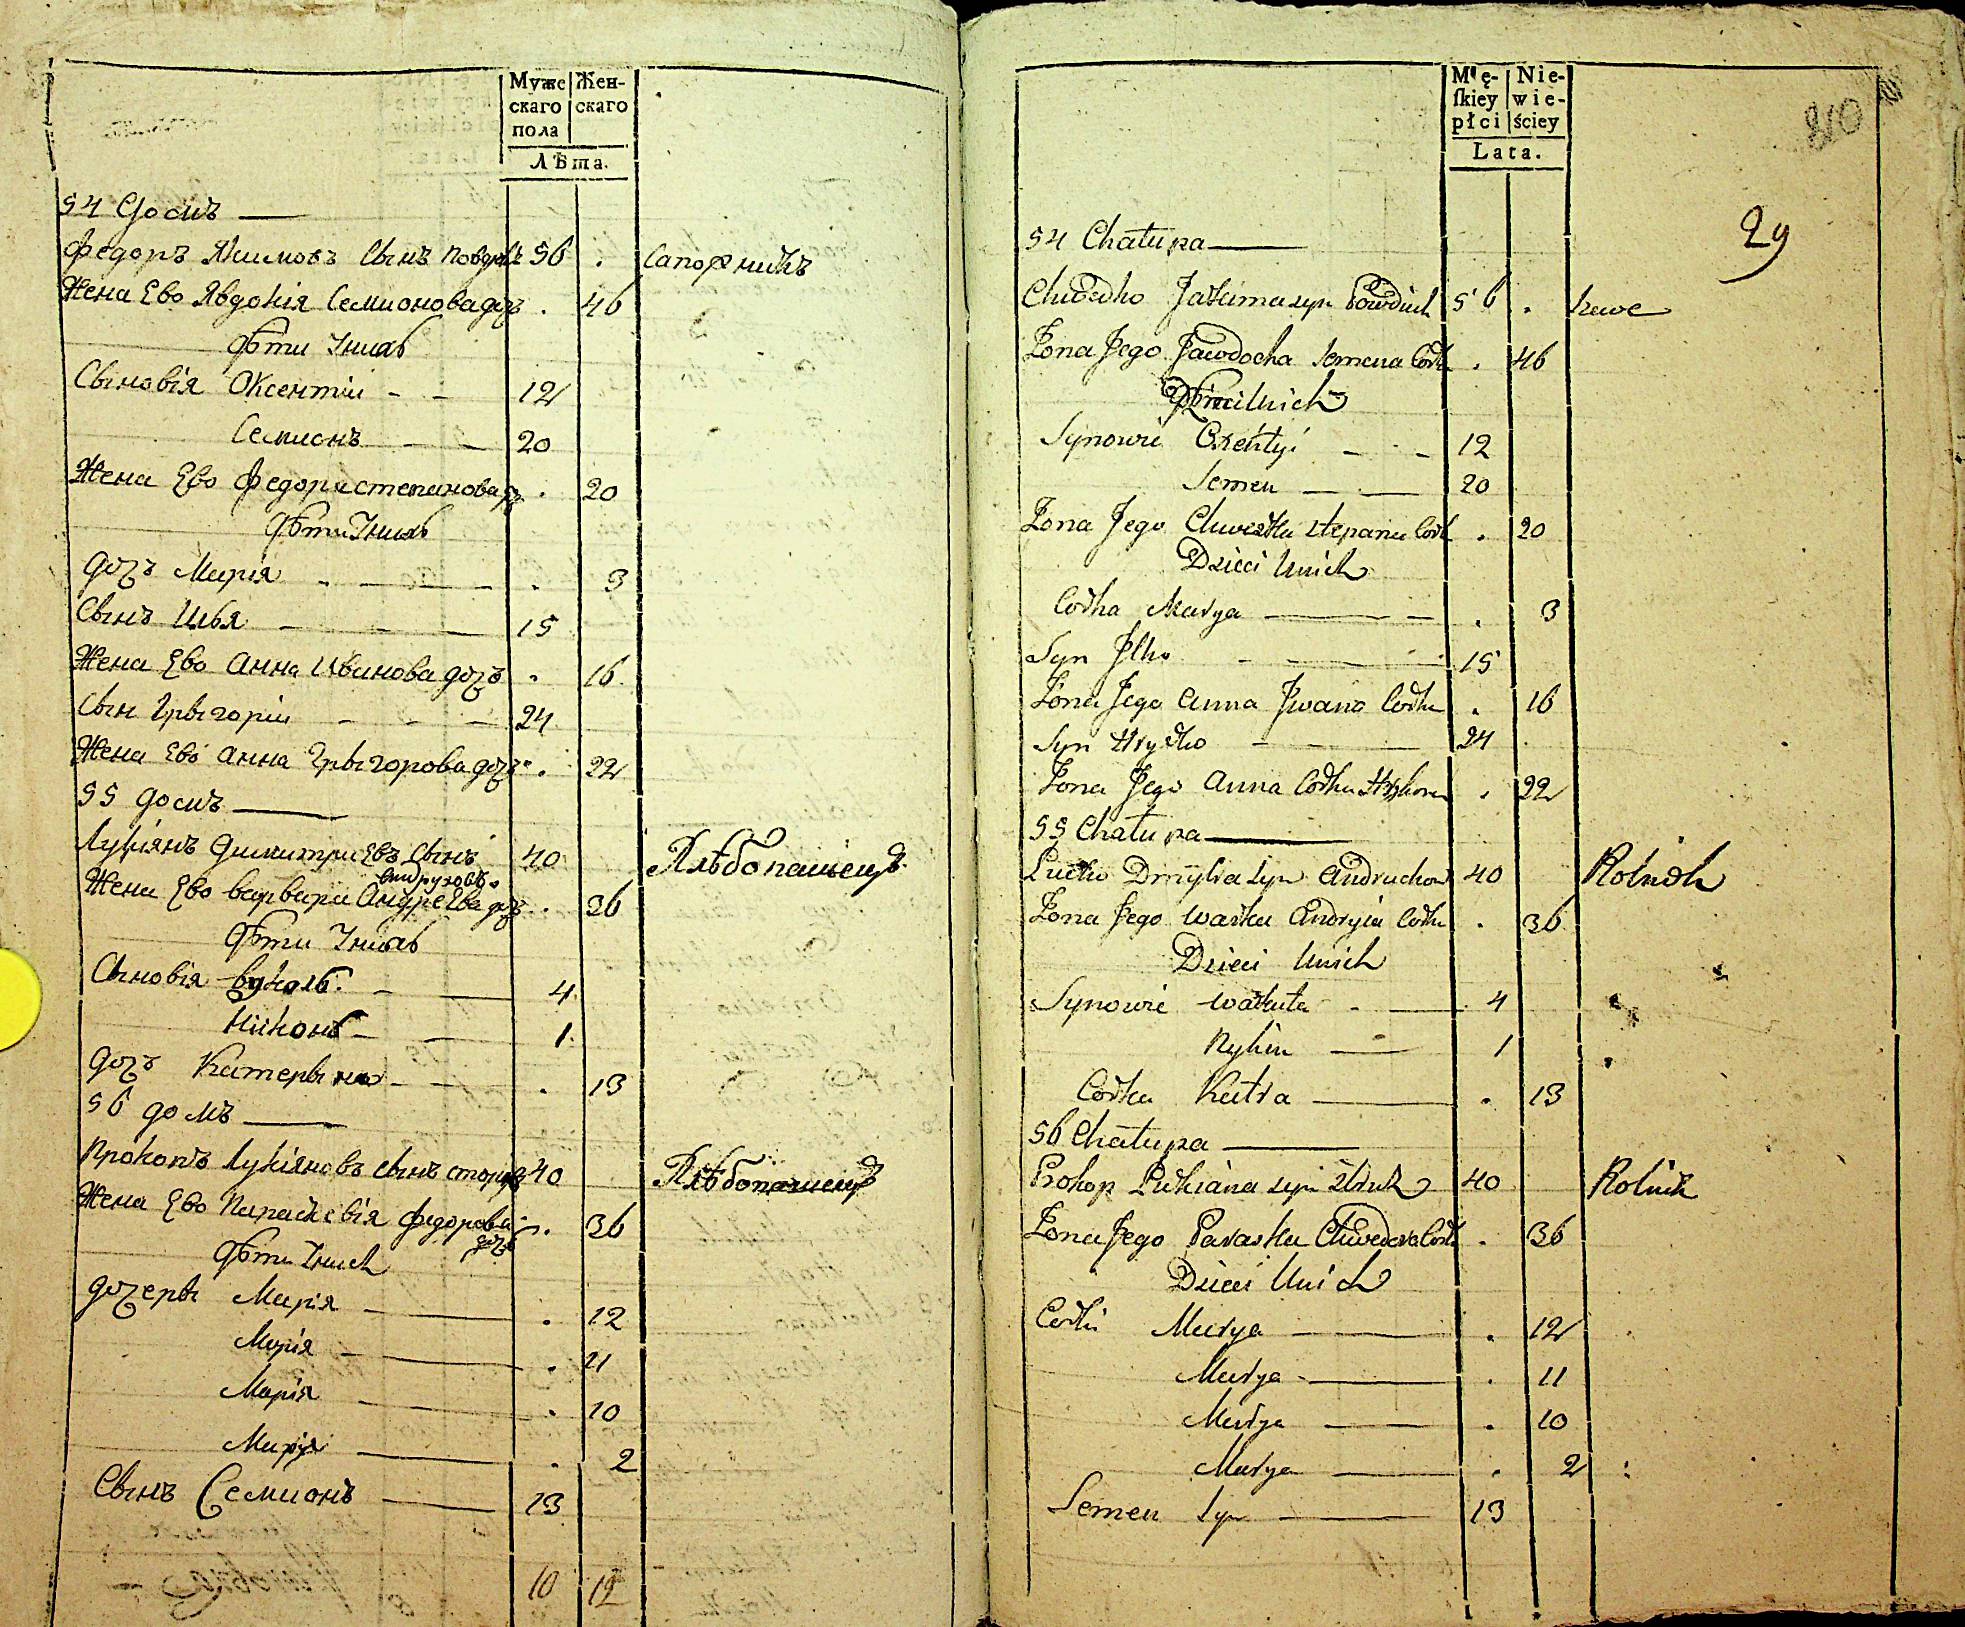 Муже
скаго
пола
Жен-
скаго
Лѣта.
54 Домъ
Федоръ Якимовъ Сынъ 56 . Сапожникъ
Жена Ево Явдокія Семионова дочъ . 46
Дѣти Ихъ
Сыновія Оксентіи - - 12
Семионъ 20
Жена Ево Федора степанова дочъ . 20
Дѣти Ихъ
Дочъ Марія . 3
Сынъ Илья 15
Жена Ево Анна Иванова дочъ . 16
Сын Грыгоріи 24
Жена Ево Анна Грыгорова дочъ . 22
55 домъ
Лукіянъ Димитриевъ Сынъ 40 Хлѣбопашецъ
андруховъ
Жена Ево варвара Андреева дочъ . 36
Дѣти
Сыновія 4
Никонъ 1
Дочъ Катерына . 13
56 домъ
Прокопъ Лукіяновъ сынъ 40 Хлѣбопашецъ
Жена Ево Параскевія Федорова . 36
дочъ
Дѣти
Дочеры Марія . 12
Марія . 11
Марія . 10
Марія . 2
Сынъ Семионъ 13
10 12
Mę-
skiey
płci
Nie-
wie-
ściey
Lata.
210
29
54 Chałupa
Chwedko Jakima syn 56 . 
Żona Jego Jawdocha Semena Corka . 46
Dzieci Unich
Synowie Oxentyi - - 12
Semen 20
Żona Jego Chweska Stepana Corka . 20
Dzieci Unich
Corka Marya . 3
Syn Jlko 15
Żona Jego Anna Jwana Corka . 16
Syn Hryćko 24
Żona Jego Anna Corka . 22
55 Chałupa
Lucko Dmytra Syn Andruchow 40 Rolnik
Żona Jego Waska Andryia Corka . 36
Dzieci Unich
Synowie 4
Nykin 1
Corka Katra . 13
56 Chałupa
Prokop Lukiana syn 40 Rolnik
Żona Jego Paraska Chwedora Corka . 36
Dzieci Unich
Corki Marya . 12
Marya . 11
Marya . 10
Marya . 2
Semen Syn 13